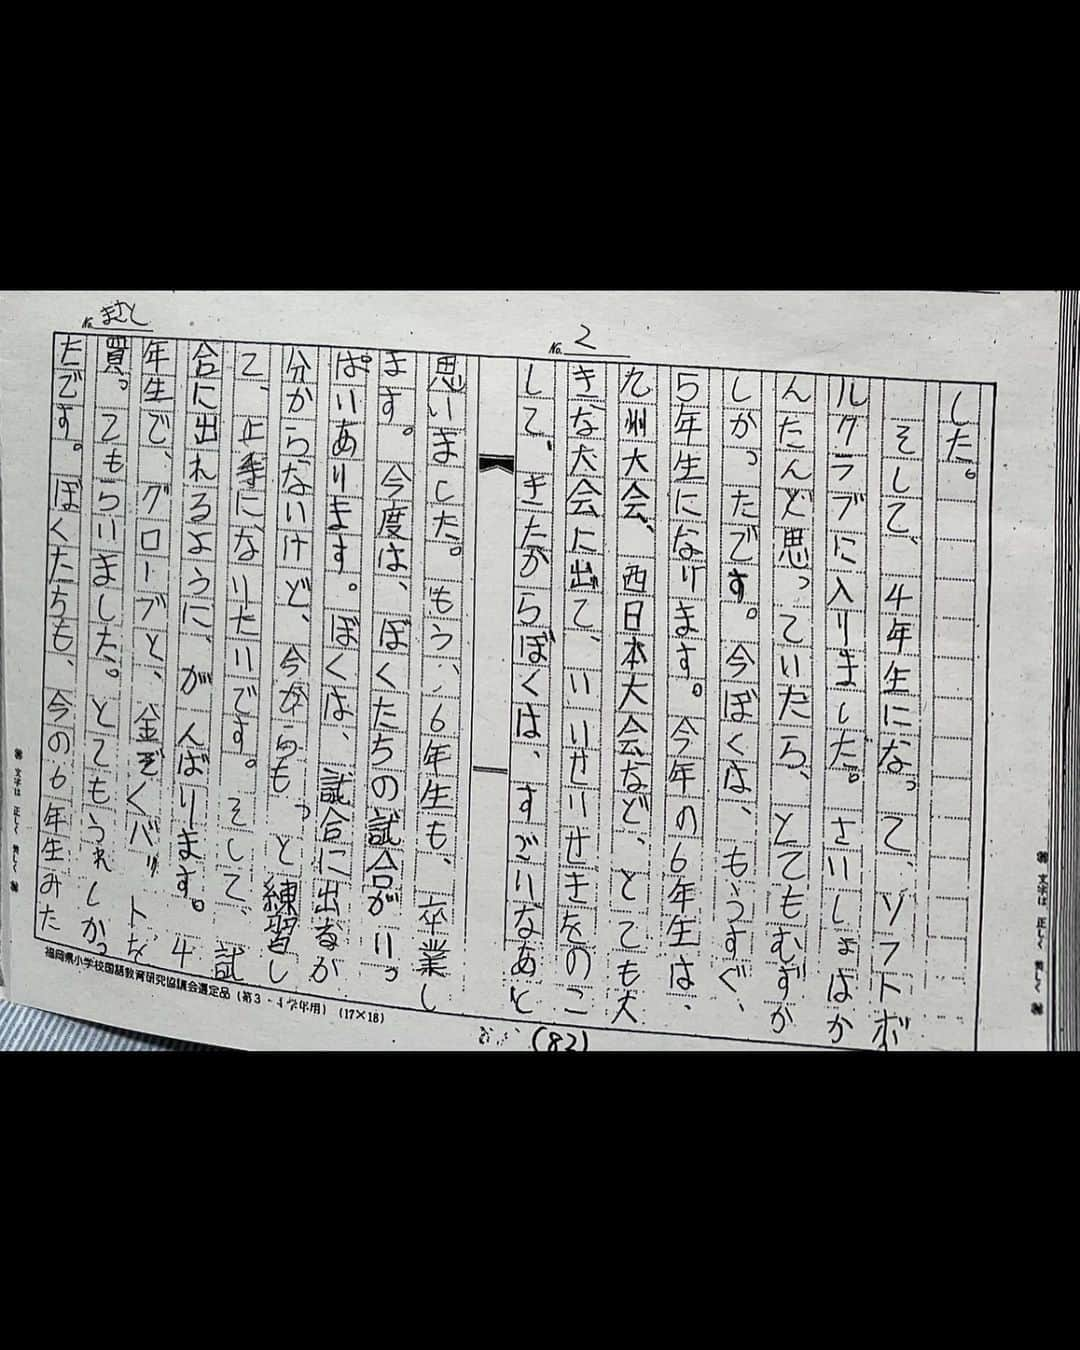 No. 2
した。
そして、4年生になって、ソフトボ
ルクラブに入りました。さいしょはか
んたんと思っていたら、とてもむずか
しかったです。今ぼくは、もうすぐ、
5年生になります。今年の6年生は、
九州大会、西日本大会など、とても大
きな大会に出て、いいせいせきをのこ
して、きたからぼくは、すごいなあと
No. まさと
思いました。もう、6年生も、卒業し
ます。今度は、ぼくたちの試合がいっ
ぱいあります。ぼくは、試合に出るか
分からないけど、今からもっと練習し
て、上手になりたいです。そして、試
合に出れるように、がんばります。4
年生で、グローブと、金ぞくバットを
買ってもらいました。とてもうれしかっ
たです。ぼくたちも、今の6年生みた
福岡県小学校国語教育研究協議会選定品(第3・4学年用)(17×18)
(82)
文字は 正しく 美しく
文字は、正しく 美しく